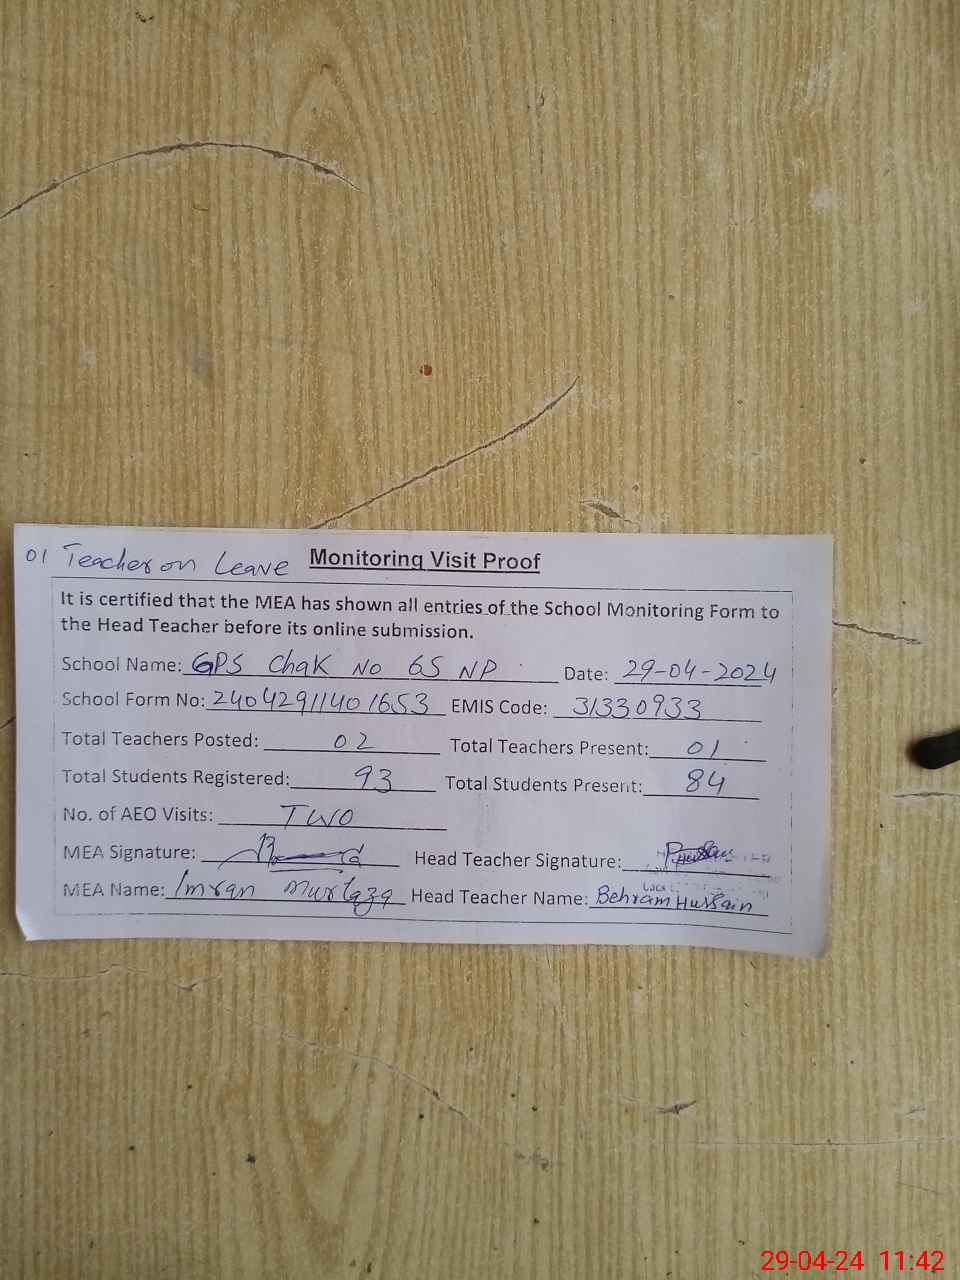 01 Teacher on Leave Monitoring Visit Proof
It is certified that the MEA has shown all entries of the School Monitoring Form to
the Head Teacher before its online submission.
School Name: GPS Chak No 65 NP Date: 29-04-2024
School Form No: 24042911401653 EMIS Code: 31330933
Total Teachers Posted: 02 Total Teachers Present: 01
Total Students Registered: 93 Total Students Present: 84
No. of AEO Visits: Two
MEA Signature: Head Teacher Signature:
MEA Name: Imran Murtaza Head Teacher Name: Behram Hussain
29-04-24 11:42